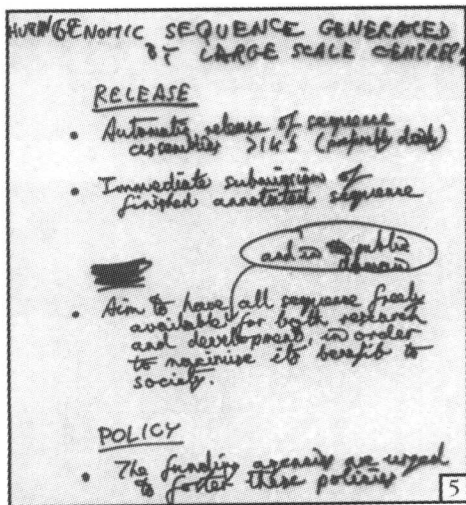 HUMAN GENOMIC SEQUENCE GENERATED
BY LARGE SCALE CENTRES
RELEASE
• Automatic release of sequence
assemblies >1kb (preferably daily)
• Immediate submission of
finished annotated sequence
and in the public
domain
• Aim to have all sequence freely
available for both research
and development, in order
to maximise its benefit to
society.
POLICY
• The funding agencies are urged
to foster these policies
5